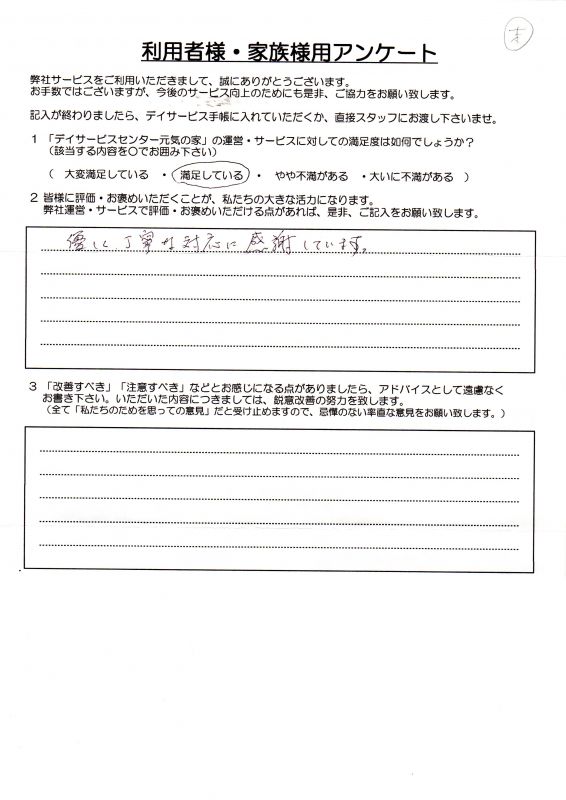 利用者様・家族様用アンケート
弊社サービスをご利用いただきまして、誠にありがとうございます。
お手数ではございますが、今後のサービス向上のためにも是非、ご協力をお願い致します。
記入が終わりましたら、デイサービス手帳に入れていただくか、直接スタッフにお渡し下さいませ。
1 「デイサービスセンター元気の家」の運営・サービスに対しての満足度は如何でしょうか？
（該当する内容を○でお囲み下さい）
（ 大変満足している ・ 満足している ・ やや不満がある ・大いに不満がある ）
2 皆様に評価・お褒めいただくことが、私たちの大きな活力になります。
弊社運営・サービスで評価・お褒めいただける点があれば、是非、ご記入をお願い致します。
優しく丁寧な対応に感謝しています。
3 「改善すべき」「注意すべき」などとお感じになる点がありましたら、アドバイスとして遠慮なく
お書き下さい。いただいた内容につきましては、鋭意改善の努力を致します。
（全て「私たちのためを思っての意見」だと受け止めますので、忌憚のない率直な意見をお願い致します。）